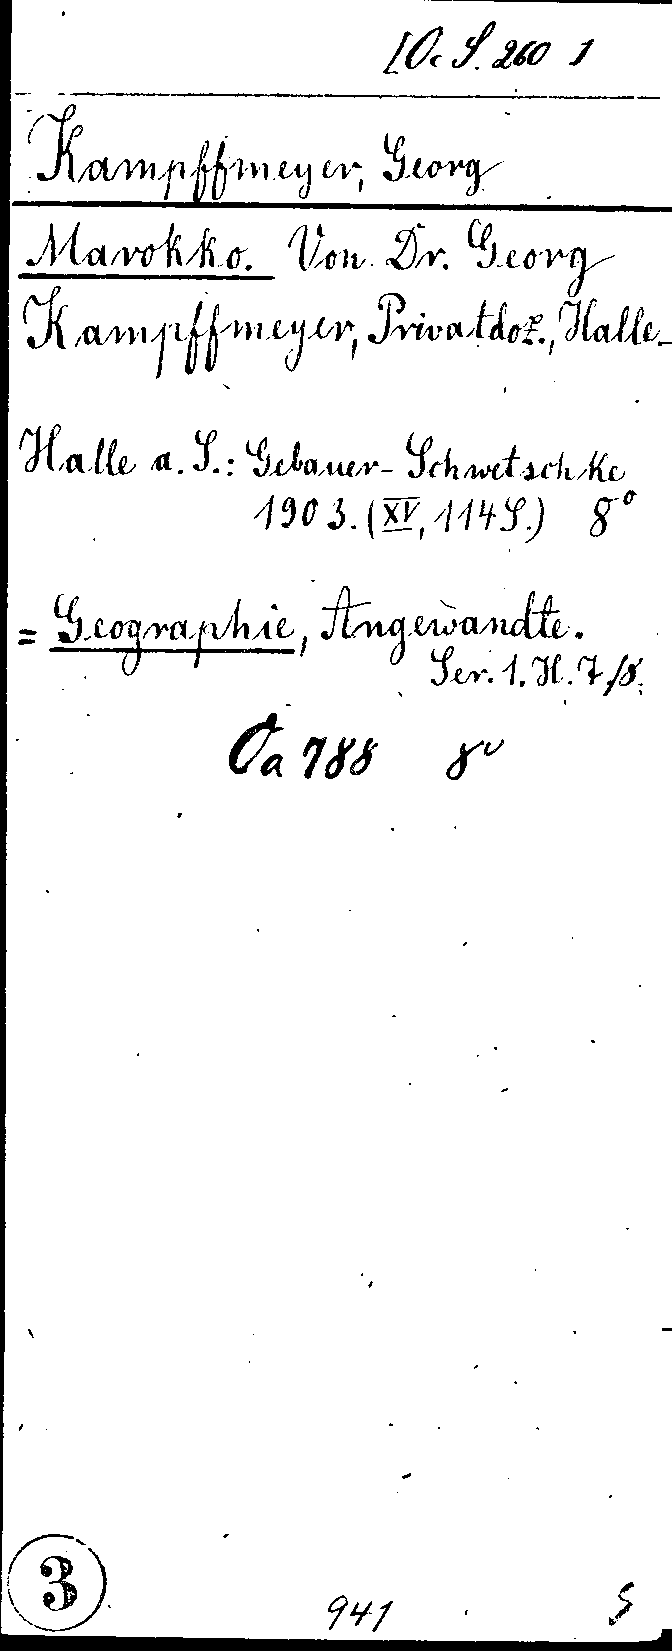 [Oc S. 260 ]
Kampffmeyer, Georg
Marokko. Von Dr. Georg
Kampffmeyer, Privatdoz., Halle
Halle a. S.: Gebauer-Schwetschke
1903. (XV, 114 S.) 8°
= Geographie, Angewandte.
Ser. 1. H. 7/8.
Oa 788 8°
3
941